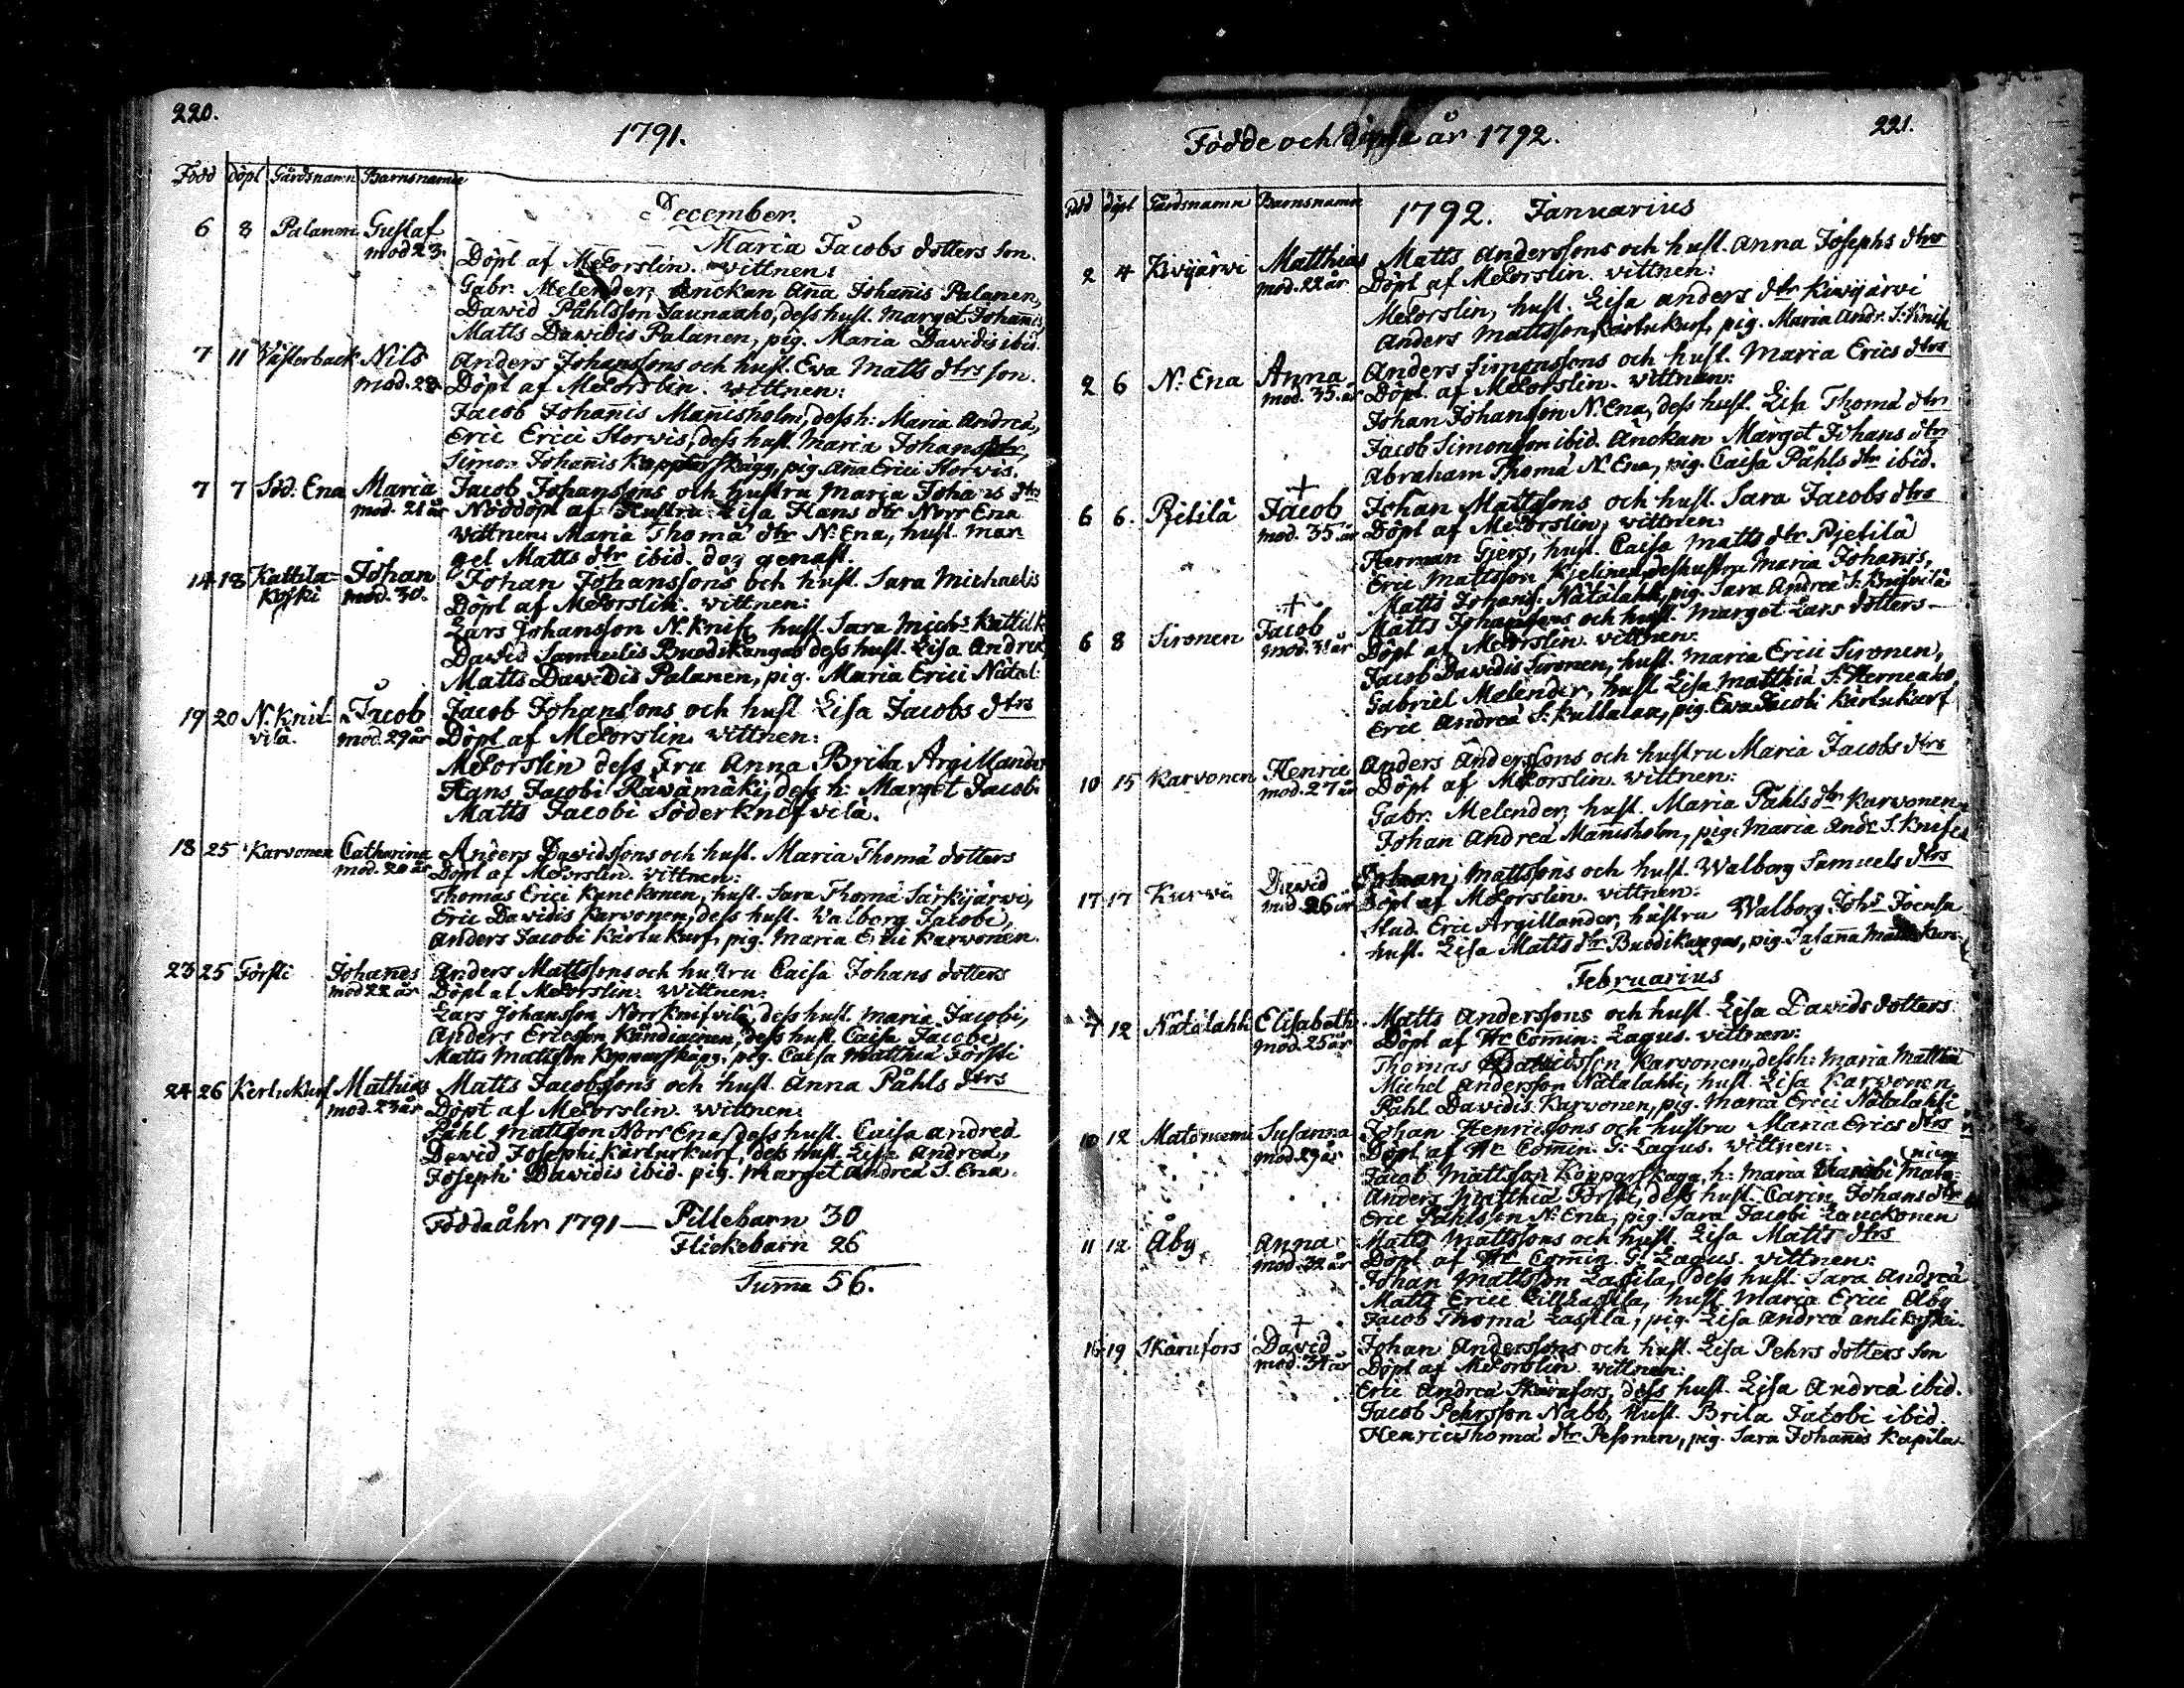 220.
1791.
Född döpt Gårdsnamn Barnsnamn
December.
6 8 Palanen Gustaf Maria Jacobs dotters son.
mod 23. Döpt af M Forslin. wittnen:
Gabr. Melender, Änckan Aña Johañis Palanen,
Dawid Påhlsson Saunaaho, dess hust. Marget Johañis,
Matts Dawidis Palanen, pig. Maria Davidis ibid.
7 11 Wästerback Nils Anders Johanssons och hust. Eva Matts dtrs son.
mod. 28. Döpt af M Forslin. wittnen:
Jacob Johañis Mañisholm, dess h: Maria Andreä,
Eric Erici Storvis, dess hust. Maria Johans dtr,
Simon Johañis Kopparskägg, pig. Ana Erici Storvis.
7 7 Söd. Ena Maria Jacob Johanssons och hustru Maria Johans dtrs
mod. 21 år Nöddöpt af Hustru Lisa Hans dtr Norr Ena
wittnen: Maria Thomä dtr N. Ena, hust. Mar
get Matts dtr ibid. dog genast.
14 18 Kattila= Johan Johan Johanssons och hust. Sara Michaelis
koski mod. 30. Döpt af M Forslin. wittnen:
Lars Johansson N. Knif, hust. Sara Michs Kattilk
David Samuelis Buodikangas dess hust. Lisa Andreä,
Matts Dawidis Palanen, pig. Maria Erici Natal:
19 20 N. Knif= Jacob Jacob Johanssons och hust Lisa Jacobs dtrs
vilä. mod. 29 år Döpt af M Forslin wittnen:
M Forslin dess Fru Anna Brita Argillander
Hans Jacobi Räwämäki, dess h: Marget Jacobi
Matts Jacobi Söder Knifvilä.
18 25 Karvonen Catharina Anders Davidssons och hust. Maria Thomä dotters
mod. 20 år Döpt af M Forslin. wittnen:
Thomas Erici Kanckonen, hust. Sara Thomä Särkijärvi,
Eric Davidis Karvonen, dess hust. Walborg Jacobi,
Anders Jacobi Kärlukurf, pig. Maria Erici Karvonen.
23 25 Försti Johañes Anders Mattssons och hustru Caisa Johans dotters
mod 22 år Döpt af M Forslin. wittnen:
Lars Johansson Norr Knifvilä, dess hust. Maria Jacobi,
Anders Ericsson Kåndiainen, dess hust. Caisa Jacobi,
Matts Mattsson Kopparskägg, pig. Caisa Matthiä Försti
24 26 Kerlukurf Mathias Matts Jacobssons och hust. Anna Påhls dtrs
mod. 23 år Döpt af M Forslin. wittnen:
Påhl Mattsson Norr Ena, dess hust. Caisa Andreä
David Josephi Kärlurkurf, dess hust. Lisa Andreä,
Joseph Davidis ibid. pig. Marget Andreä S. Ena.
Födda åhr 1791 — Pillebarn 30
Flickebarn 26
Suma 56.
221.
Födde och döpte år 1792.
Född döpt Gårdsnamn Barnsnamn
1792. Januarius
2 4 Kivijärvi Matthias Matts Anderssons och hust. Anna Josephs dtrs
mod. 22 år Döpt af M Forslin. wittnen:
M Forslin, hust. Lisa Anders dtr Kivijärvi
Anders Mattsson, Kärlukurf, pig. Maria Andr. S. Knif
2 6 N. Ena Anna Anders Simonssons och hust. Maria Erics dtrs
mod. 35. år Döpt af M Forslin. wittnen:
Johan Johansson N. Ena, dess hust. Lisa Thomä dtr
Jacob Simonsson ibid. Änckan Marget Johans dtr
Abraham Thomä N. Ena, pig. Caisa Påhls dtr ibid.
+
6 6. Pjetilä Jacob Johan Mattssons och hust. Sara Jacobs dtrs
mod. 35 år Döpt af M Forslin, wittnen:
Herman Gjers, hust. Caisa Matts dtr Pjetilä
Eric Mattsson Kjelinen dess hustru Maria Johañis,
Matts Johans. Natalahti, pig. Sara Andreä S. Knifvilä
+
6 8 Sironen Jacob Matts Johanssons och hust. Marget Lars dotters—
mod. 31 år Döpt af M Forslin. wittnen:
Jacob Davidis Sironen, hust. Maria Erici Sironen,
Gabriel Melender, hust Lisa Matthiä S. Herneaho,
Eric Andreä S. Kullalaa, pig. Eva Jacobi Kärlukurf
10 15 Karvonen Henric Anders Anderssons och hustru Maria Jacobs dtrs
mod. 27 år Döpt af M Forslin. wittnen:
Gabr. Melender, hust. Maria Påhls dtr Karvonen,
Johan Andreä Mañisholm, pig. Maria Andr. S. Knif
17 17 Kurvi David Johan Mattssons och hust. Walborg Samuels dtrs
mod. 26 år Döpt af M Forslin. wittnen:
Stud. Eric Argillander, hustru Walborg Johs Joensu
hust. Lisa Matts dtr Buodikangas, pig. Susaña
Februarius
7 12 Natalahti Elisabeth Matts Anderssons och hust. Lisa Davids dotters
mod. 25 år Döpt af Hr Comin: Lagus. wittnen:
Thomas Davidsson Karvonen, dess h: Maria Matthiä
Michel Andersson Natalahti, hust. Lisa Karvonen
Påhl Davidis Karvonen, pig. Maria Erici Natalahti
10 12 Matoniemi Susanna Johan Henricssons och hustru Maria Erics dtrs
mod. 29 år Döpt af Hr Comin: G. Lagus. wittnen:
Jacob Mattsson Kopparskägg, h: Maria Jacobi Mato
niemi
Anders Matthiä Försti, dess hust. Carin Johans dtr
Eric Påhlsson N. Ena, pig. Sara Jacobi Lauckonen
11 12 Åby Anna Matts Mattssons och hust. Lisa Matts dtrs
mod. 32 år Döpt af Hr Comin G. Lagus. wittnen:
Johan Mattsson Lassila, dess hust. Sara Andreä
Matts Erici Lill Lassila, hust. Maria Erici Åby
Jacob Thomä Lassila, pig. Lisa Andreä
+
16 19 Skärufors David Johan Anderssons och hust. Lisa Pehrs dotters son
mod. 34 år Döpt af M Forslin. wittnen:
Eric Andreä Skärufors, dess hust. Lisa Andreä ibid.
Jacob Pehrsson Nabb, Hust. Brita Jacobi ibid.
Henric Thomä dtr Pesonen, pig. Sara Johañis Kapila.